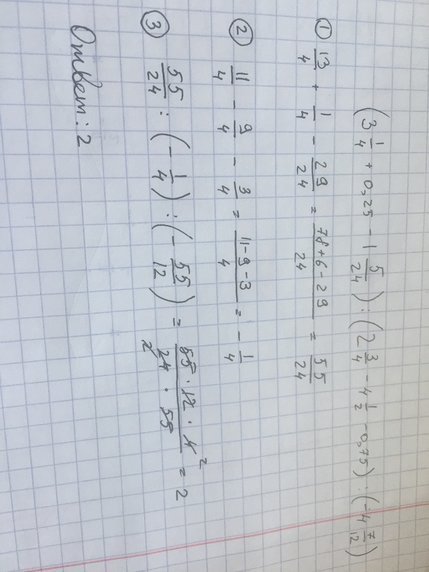 (3 1/4 + 0,25 - 1 5/24) : (2 3/4 - 4 1/2 - 0,75) : (-4 7/12)
① 13/4 + 1/4 - 29/24 = (78+6-29)/24 = 55/24
② 11/4 - 9/4 - 3/4 = (11-9-3)/4 = -1/4
③ 55/24 : (-1/4) : (-55/12) = (55 · 12 · 4)/(24 · 55) = 2
Ответ: 2